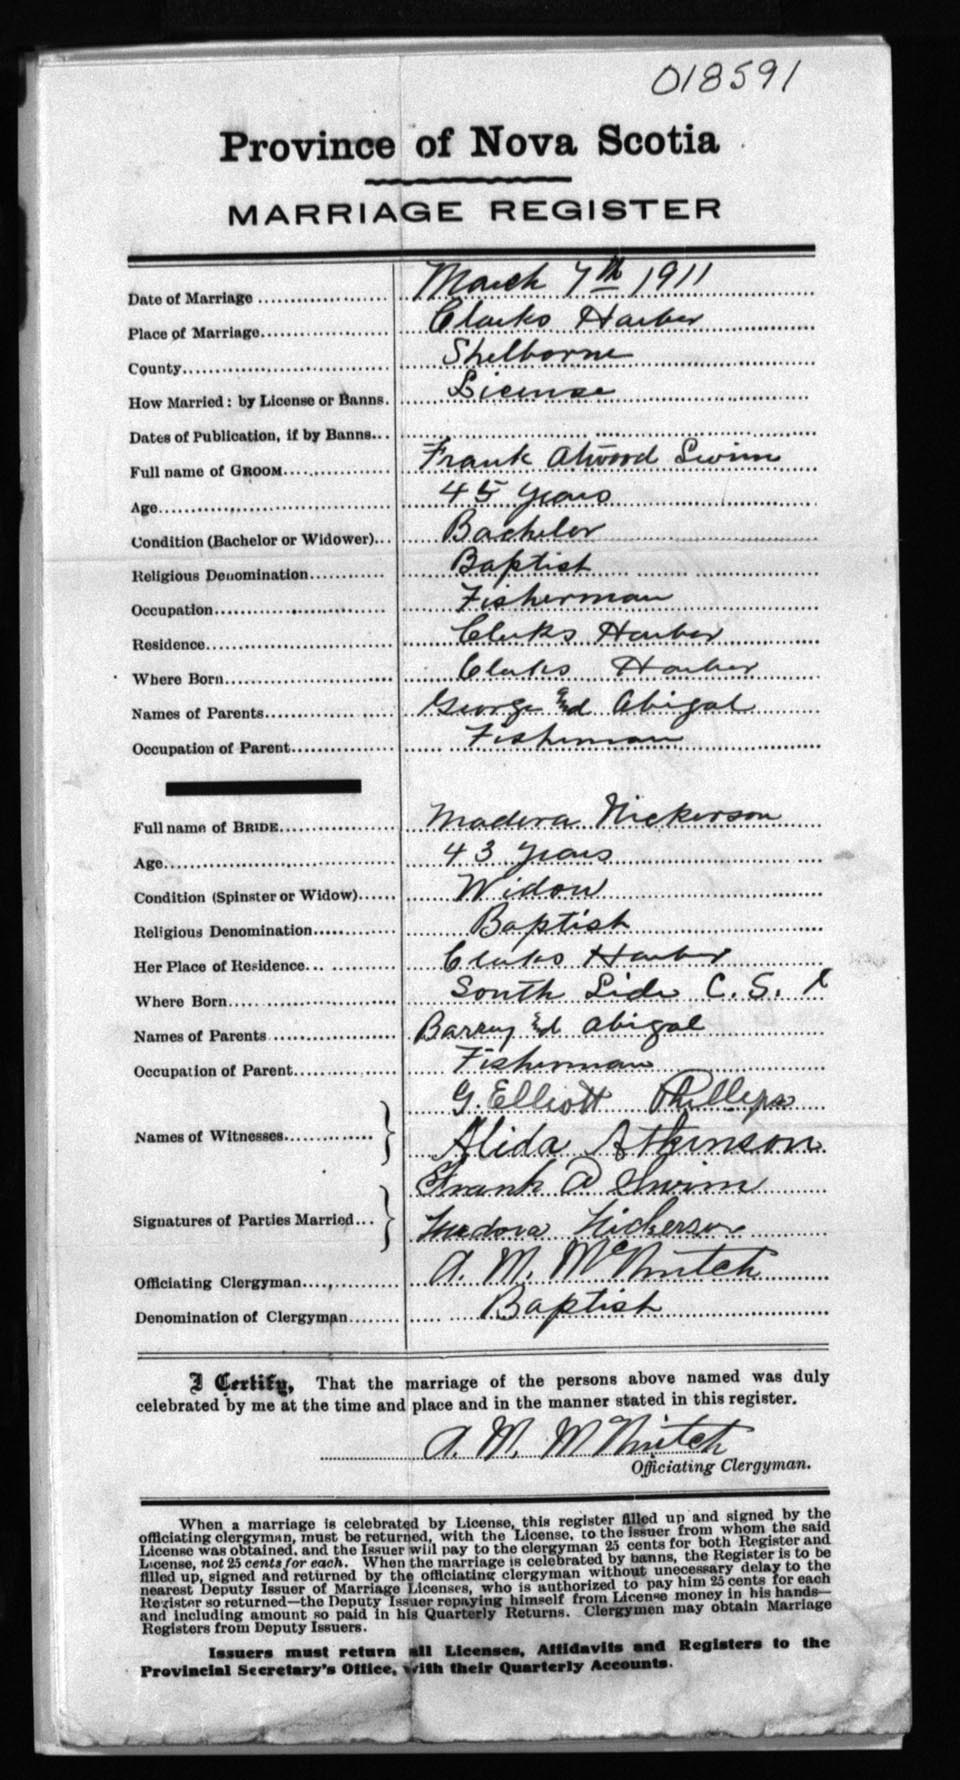 018591
Province of Nova Scotia
MARRIAGE REGISTER
Date of Marriage March 7th 1911
Place of Marriage Clarks Harber
County Shelborne
How Married: by License or Banns. License
Dates of Publication, if by Banns
Full name of GROOM Frank Atwood Swim
Age 45 years
Condition (Bachelor or Widower) Bachelor
Religious Denomination Baptist
Occupation Fisherman
Residence Clarks Harber
Where Born Clarks Harber
Names of Parents George And Abigal
Occupation of Parent Fisherman
Full name of BRIDE Madora Nickerson
Age 43 years
Condition (Spinster or Widow) Widow
Religious Denomination Baptist
Her Place of Residence Clarks Harber
Where Born South Side C. S. I
Names of Parents Barry And Abigal
Occupation of Parent Fisherman
G. Elliott Phillips
Names of Witnesses
Alida Atkinson
Frank A Swim
Signatures of Parties Married
Medora Nickerson
Officiating Clergyman A. M. McNintch
Denomination of Clergyman Baptist
I Certify, That the marriage of the persons above named was duly
celebrated by me at the time and place and in the manner stated in this register.
A. M. McNintch
Officiating Clergyman.
When a marriage is celebrated by License, this register filled up and signed by the
officiating clergyman, must be returned, with the License, to the issuer from whom the said
License was obtained, and the Issuer will pay to the clergyman 25 cents for both Register and
License, not 25 cents for each. When the marriage is celebrated by banns, the Register is to be
filled up, signed and returned by the officiating clergyman without unecessary delay to the
nearest Deputy Issuer of Marriage Licenses, who is authorized to pay him 25 cents for each
Register so returned—the Deputy Issuer repaying himself from License money in his hands—
and including amount so paid in his Quarterly Returns. Clergymen may obtain Marriage
Registers from Deputy Issuers.
Issuers must return all Licenses, Affidavits and Registers to the
Provincial Secretary's Office, with their Quarterly Accounts.